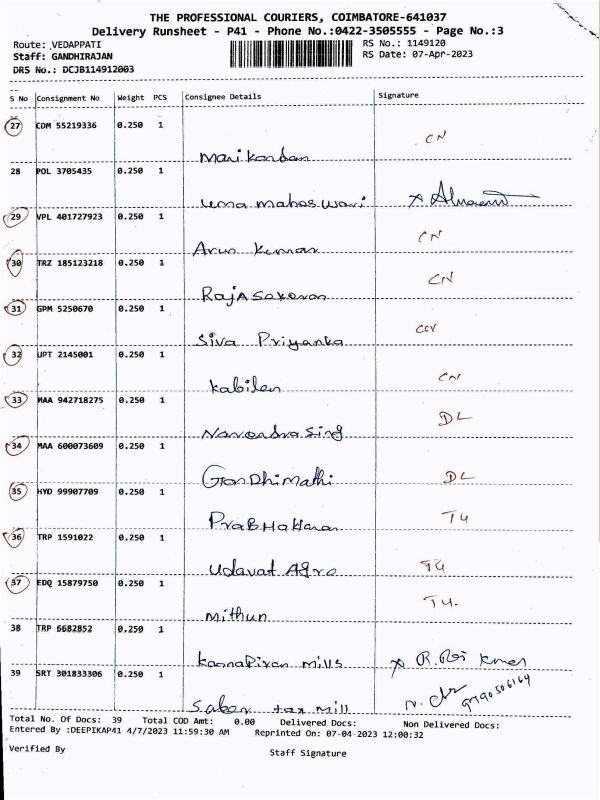 THE PROFESSIONAL COURIERS, COIMBATORE-641037
Delivery Runsheet - P41 - Phone No.:0422-3505555 - Page No.:3
Route: ,VEDAPPATI RS No.: 1149120
Staff: GANDHIRAJAN RS Date: 07-Apr-2023
DRS No.: DCJB114912003
S No Consignment No Weight PCS Consignee Details Signature
27 CDM 55219336 0.250 1 CN
Mari kandan
28 POL 3705435 0.250 1
uma mahes wari
29 VPL 401727923 0.250 1 CN
Arun kumar
30 TRZ 185123218 0.250 1 CN
RajA Sekaran
31 GPM 5250670 0.250 1
Siva Priyanka
32 UPT 2145001 0.250 1 CN
kabilan
33 MAA 942718275 0.250 1 DL
Narendra Sing
34 MAA 600073609 0.250 1 DL
GanDhimathi
35 HYD 99907709 0.250 1 T4
PraBHakaran
36 TRP 1591022 0.250 1 T4
Udayat Agro
37 EDQ 15879750 0.250 1 T4.
Mithun
38 TRP 6682852 0.250 1
kannaPiran mills R.
39 SRT 301833306 0.250 1 9790506169
Saber tax mill
Total No. Of Docs: 39 Total COD Amt: 0.00 Delivered Docs: Non Delivered Docs:
Entered By :DEEPIKAP41 4/7/2023 11:59:30 AM Reprinted On: 07-04-2023 12:00:32
Verified By Staff Signature